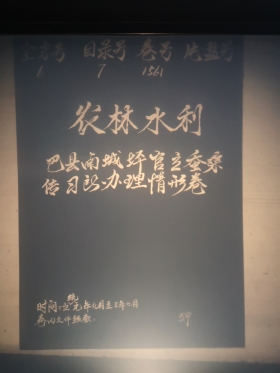 全宗号 目录号 卷号 片盘号
1 7 1561
农林水利
巴县南城坪官立蚕桑
传习所办理情形卷
统
时间:宣元年九月至三年七月
卷内文件张数:
59